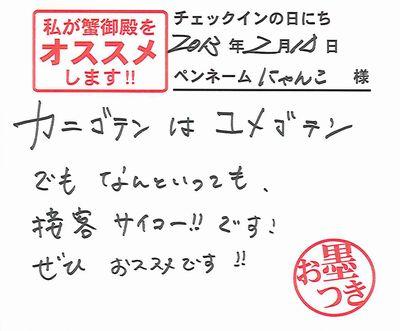 私が蟹御殿を
オススメ
します!!
チェックインの日にち
2013年2月10日
ペンネーム にゃんこ 様
カニゴテンは ユメゴテン
でも なんといっても、
接客 サイコー!! です!
ぜひ おススメです!!
お墨つき